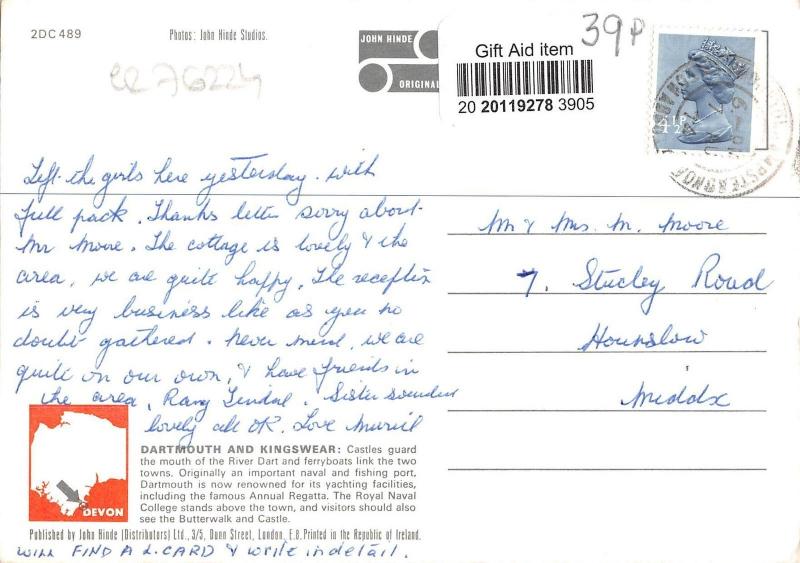 2DC489
Photos: John Hinde Studios.
JOHN HINDE
ORIGINAL
Gift Aid item
20 20119278 3905
39p
4½P
Left the girls here yesterday. with
full pack. Thanks letter sorry about
Mr Moore. The cottage is lovely & the
area, we are quite happy. The reception
is very business like as you no
doubt gathered. never mind, we are
quite on our own, & have friends in
the area, Rang . Sister sounded
lovely all OK. Love Muriel
Mr & Mrs. M. Moore
7. Stucley Road
Hounslow
Middx
DEVON
DARTMOUTH AND KINGSWEAR: Castles guard
the mouth of the River Dart and ferryboats link the two
towns. Originally an important naval and fishing port,
Dartmouth is now renowned for its yachting facilities,
including the famous Annual Regatta. The Royal Naval
College stands above the town, and visitors should also
see the Butterwalk and Castle.
Published by John Hinde (Distributors) Ltd., 3/5, Dunn Street, London, E.8. Printed in the Republic of Ireland.
WILL FIND A L. CARD & write in detail.